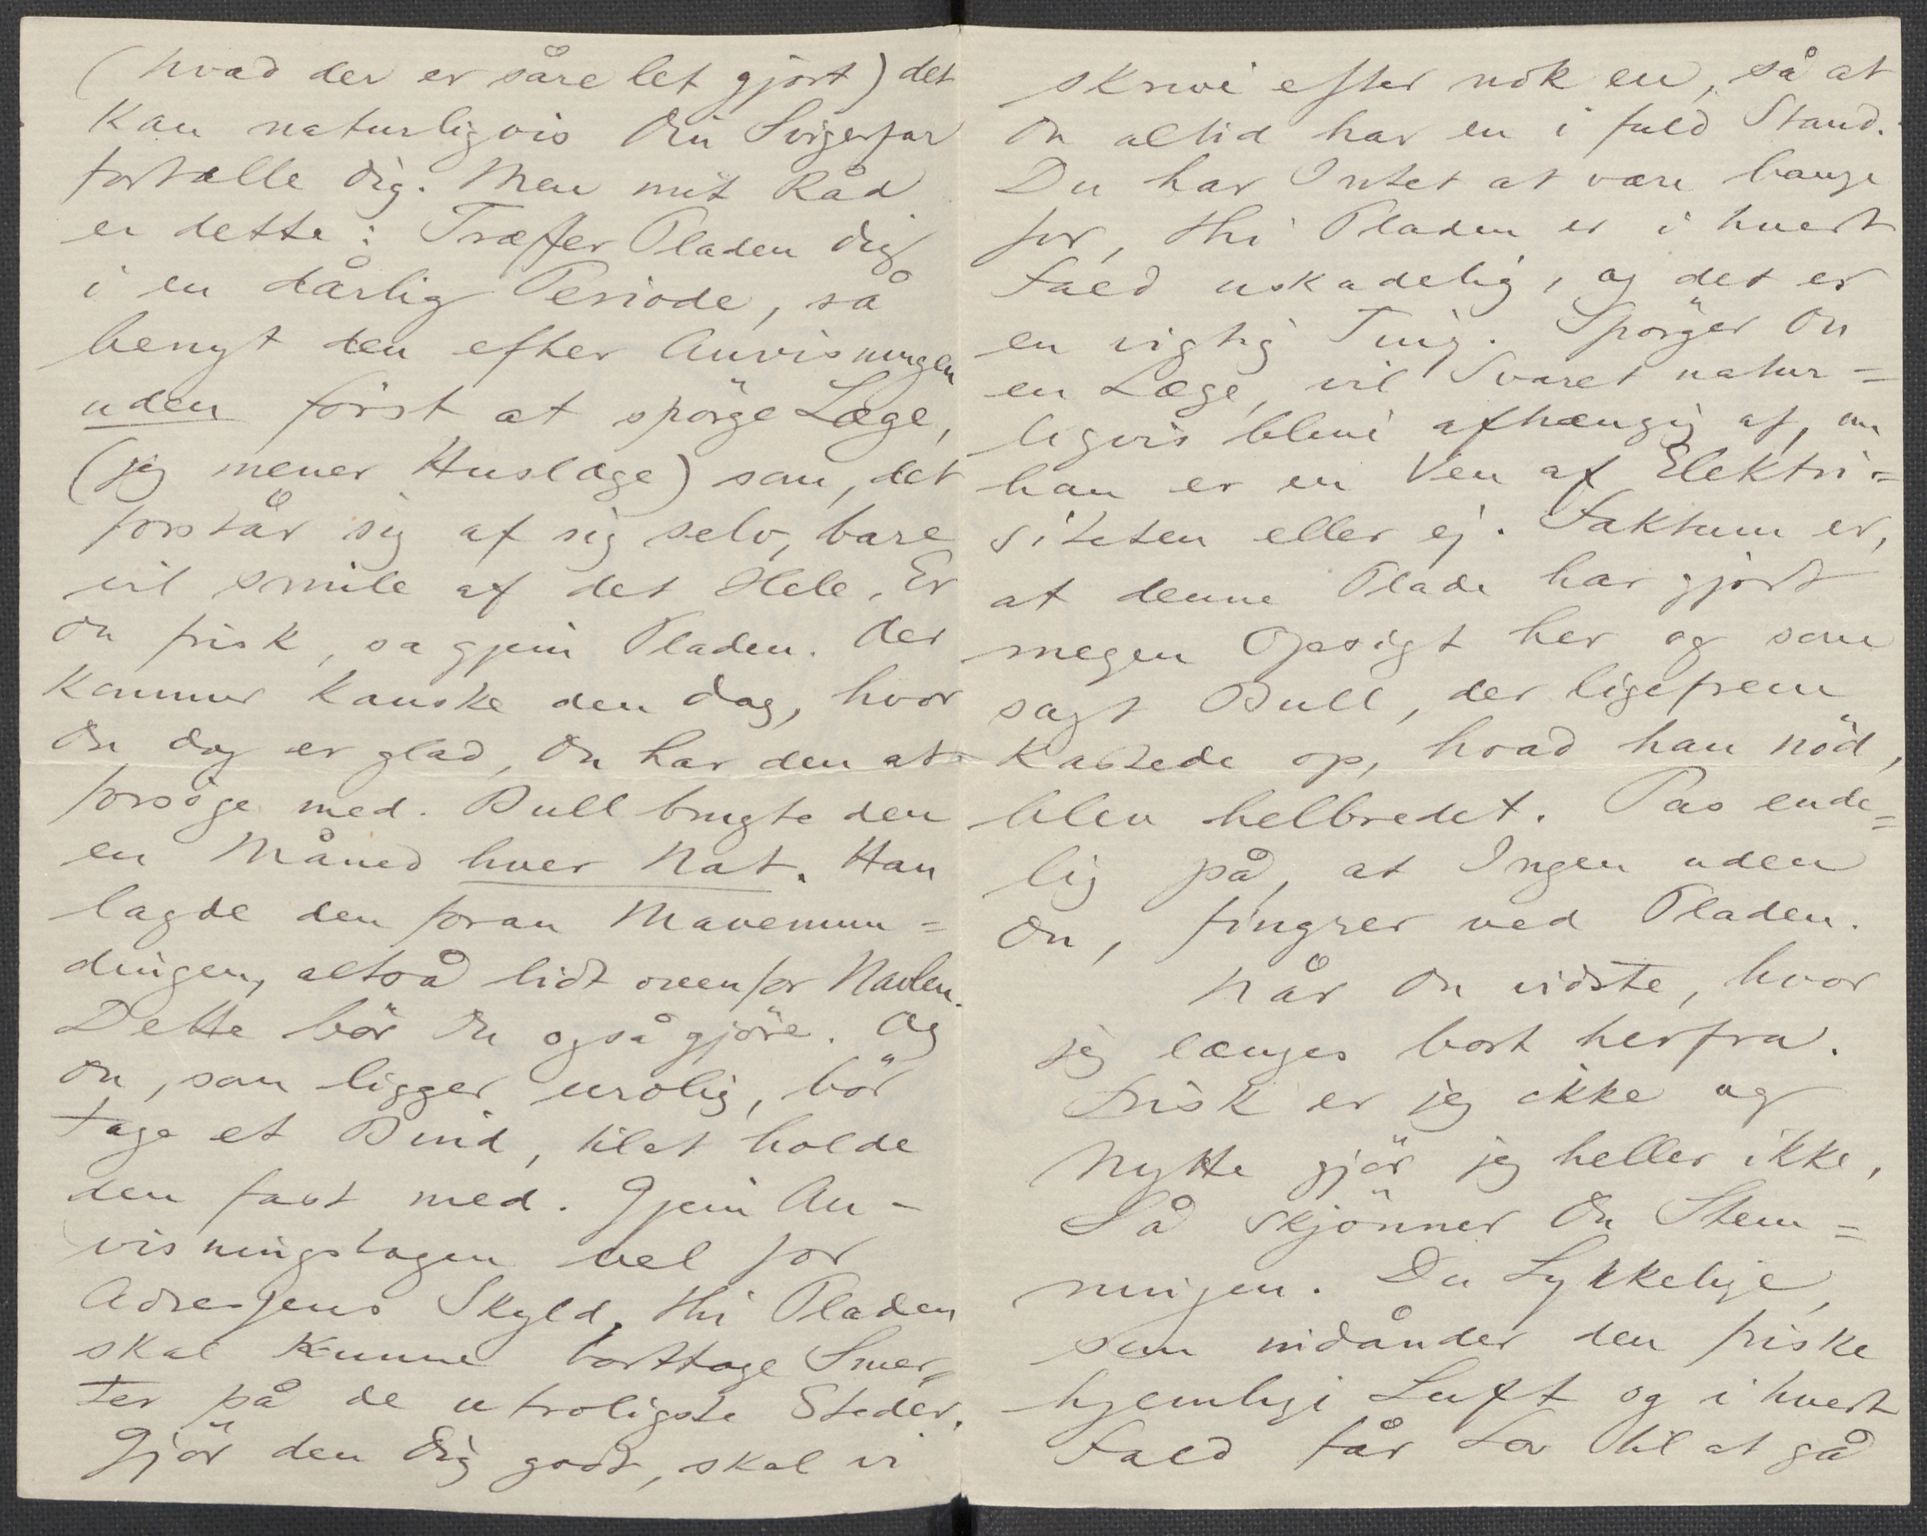 (hvad der er såre let gjort) det
kan naturligvis Din Svigerfar
fortælle Dig. Men mit Råd
er dette: Træffer Pladen Dig
i en dårlig Periode, så
benyt den efter Anvisningen
uden först at spörge Læge,
(jeg mener Huslæge) som, det
forstår sig af sig selv, bare
vil smile af det Hele. Er
Du frisk, så gjem Pladen. Der
kommer kanske den Dag, hvor
Du dog er glad, Du har den at
forsöge med. Bull brugte den
en Måned hver Nat. Han
lagde den foran Mavemun=
dingen, altså lidt ovenfor Navlen.
Dette bör Du også gjöre. Og
Du, som ligger urolig, bör
tage et Bind, til at holde
den fast med. Gjem An-
visningstagen vel for
Adressens Skyld, thi Pladen
skal kunne borttage Smer=
ter på de utroligste Steder.
Gjör den Dig godt, skal vi
skrive efter nok en, så at
Du altid har en i fuld Stand.
Du har Intet at være bange
for, thi Pladen er i hvert
Fald uskadelig, og det er
en vigtig Ting. Spörger Du
en Læge, vil Svaret natur=
ligvis blive afhængig af, om
han er en Ven af Elektri=
siteten eller ej. Faktum er,
at denne Plade har gjort
megen Opsigt her og som
sagt Bull, der ligefrem
kastede op, hvad han nöd,
blev helbredet. Pas ende=
lig på, at Ingen uden
Du, fingrer ved Pladen.
Når Du vidste, hvor
jeg længes bort herfra.
Frisk er jeg ikke og
Nytte gjör jeg heller ikke,
Så skjönner Du Stem=
ningen. Du Lykkelige,
som indånder den friske
hjemlige Luft og i hvert
Fald får Lov til at gå